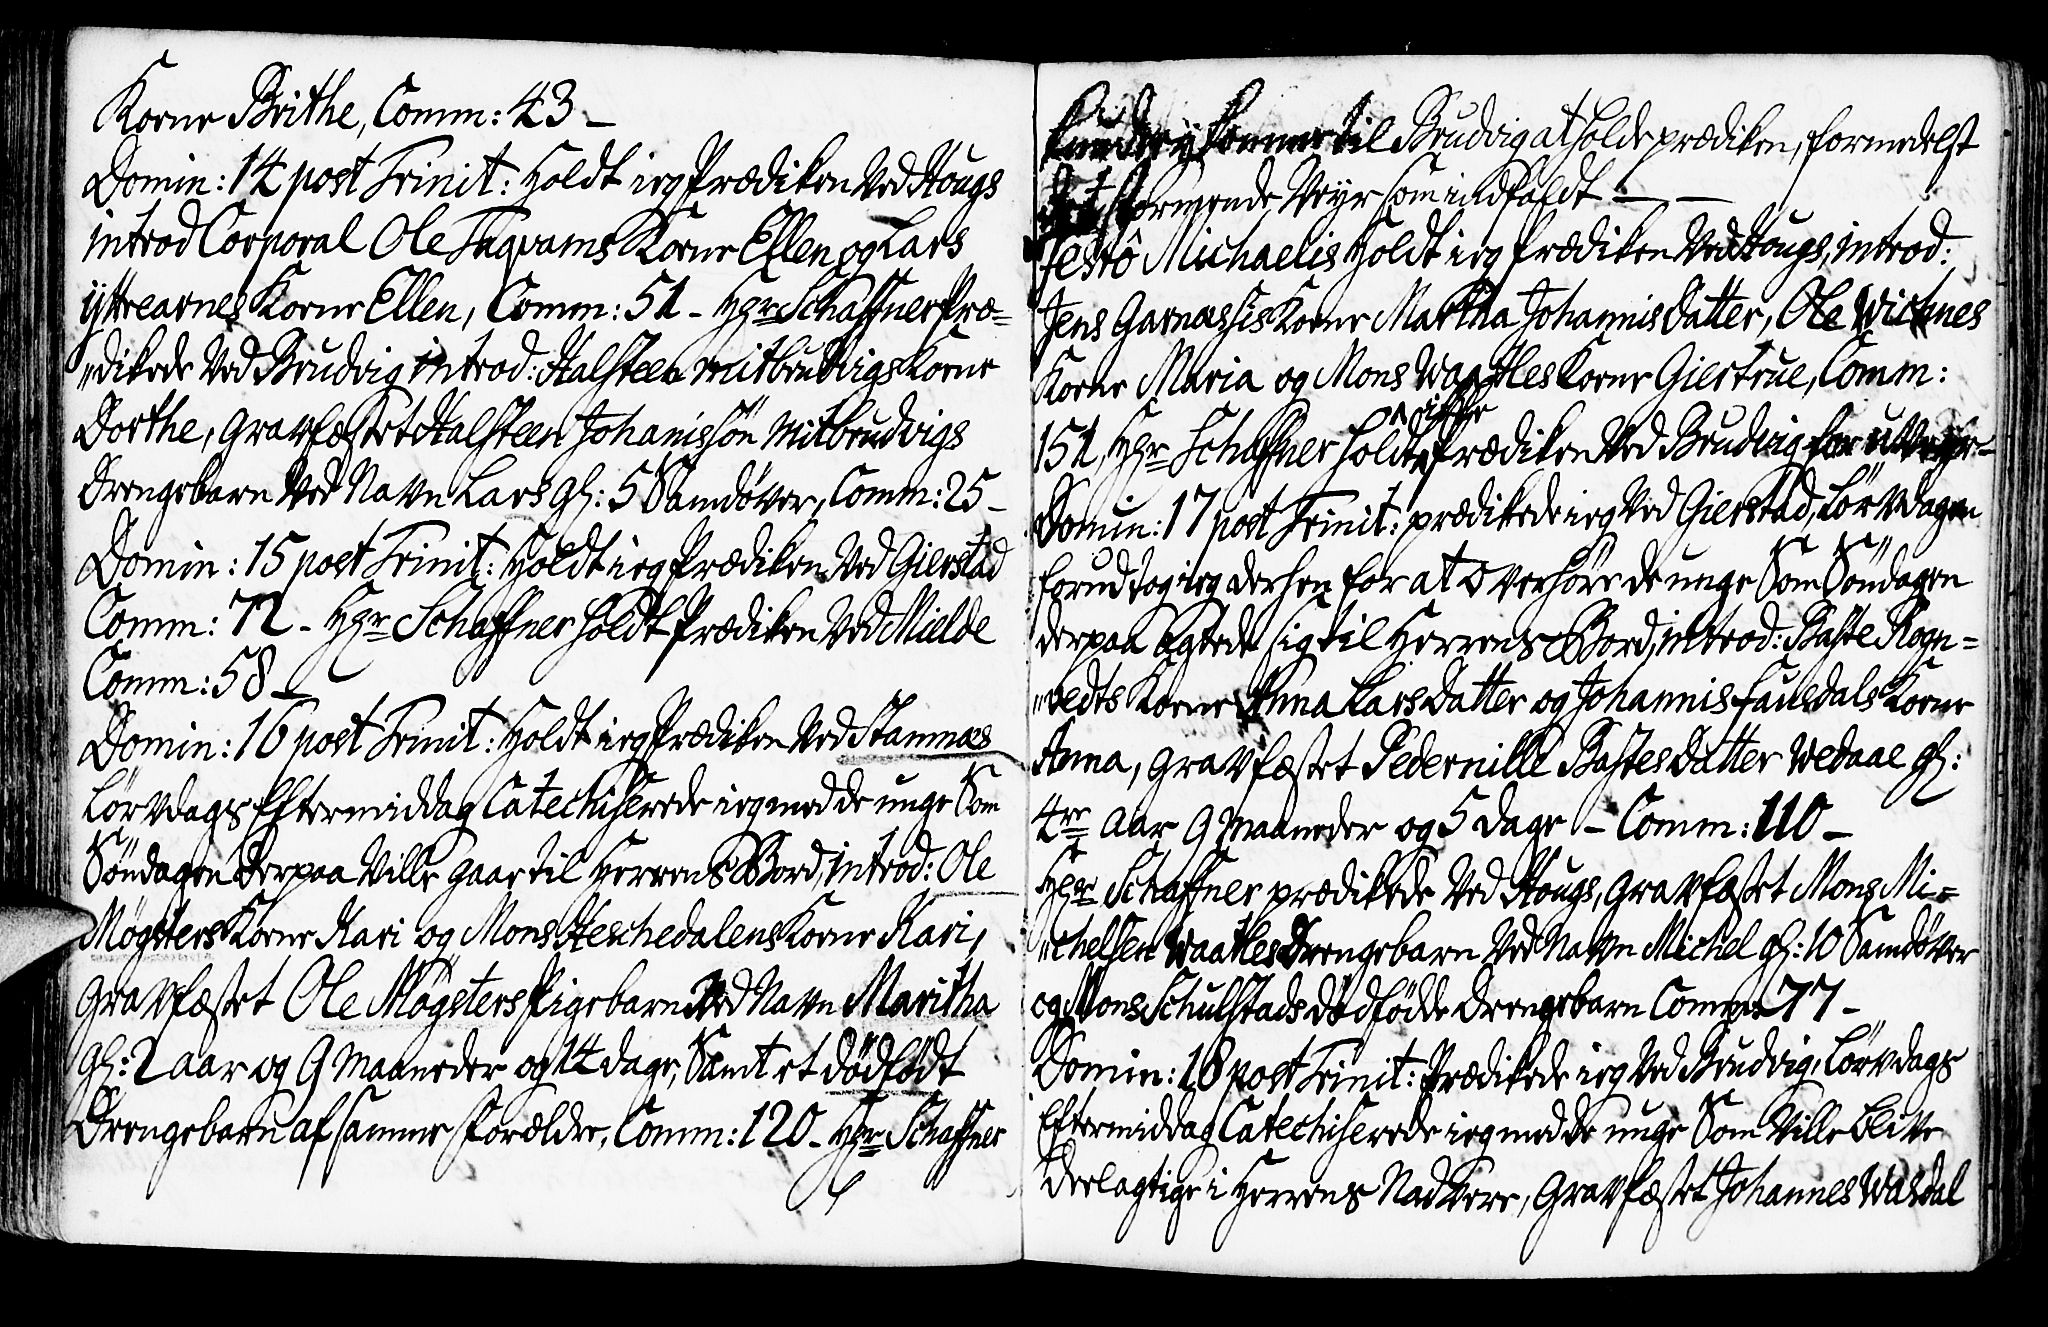 Kone Brithe, Comm: 43 –
Domin: 14 post Trinit: Holdt ieg Prædiken Ved Hougs
introd Corporal Ole Taqvams Kone Ellen og Lars
yttrearnes Kone Ellen, Comm: 51 – Hgr Schaffner Præ=
"dikede Ved Brudvig introd: Halsteen mitbrudvigs Kone
Dorthe, Gravfæstet Halsteen Johanissön Mitbrudvigs
Drengebarn Ved Navn Lars gl: 5 Samdøver, Comm: 25 –
Domin: 15 post Trinit: Holdt ieg Prædiken Ved Gierstad
Comm: 72 – Hgr Schaffner holdt Prædiken Ved Mielde
Comm: 58 –
Domin: 16 post Trinit: Holdt ieg Prædiken Ved Stamnæs
Lörvdags Eftermiddag Catechiserede ieg med de unge Som
Söndagen derpaa Ville gaae til Herrens Bord, introd: Ole
Møgsters Kone Kari og Mons Heschedalens Kone Kari,
Gravfæstet Ole Møgsters Pigebarn Ved Navn Maritha
gl: 2 aar og 9 Maaneder og 14 dage, Samt et dödfödt
Drengebarn af samme Forældre, Comm: 120 – Hgr Schaffner
kunde ey komme til Brudvig at holde prædiken, formedelst
det stormende Veyr som indfaldt –
Festô Michaelis Holdt ieg Prædiken Ved Hougs, introd:
Jens Garnæssis Kone Martha Johannis Datter, Ole Wichnes
Kone Maria og Mons Waathles Kone Giertrue, Comm:
151, Hgr Schaffner holdt icke Prædiken Ved Brudvig for uveyr –
Domin: 17 post Trinit: prædikede ieg Ved Gierstad, Lörvdagen
forud tog ieg derhen for at overhöre de unge Som Söndagen
derpaa agtede sig til Herrens Bord, introd: Baste Rogn=
"vedts Kone Anna Lars Datter og Johannis fausdals Kone
Anna, Gravfæstet Pedernille Bastes Datter Wedaae gl:
4re aar 9 Maaneder og 5 dage – Comm: 110 –
Hgr Schaffner prædikede Ved Hougs, Gravfæstet Mons Mi=
"chelsen Waathles Drengebarn Ved Navn Michel gl: 10 Samdøver
og Mons Schulstads dödfödde Drengebarn Comm: 77 –
Domin: 18 post Trinit: Prædikede ieg Ved Brudvig, Lörvdags
Eftermiddag Catechiserede ieg med de unge Som Ville blive
deelagtige i Herrens Nadvere, Gravfæstet Johannes Wasdal